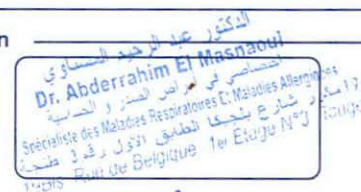 n
الدكتور عبد الرحيم المسناوي
Dr. Abderrahim El Masnaoui
اختصاصي في أمراض الصدر و الحساسية
Spécialiste des Maladies Respiratoires Et Maladies Allergiques
شارع بلجيكا الطابق الأول رقم 3 طنجة
Rue de Belgique 1er Etage N°3